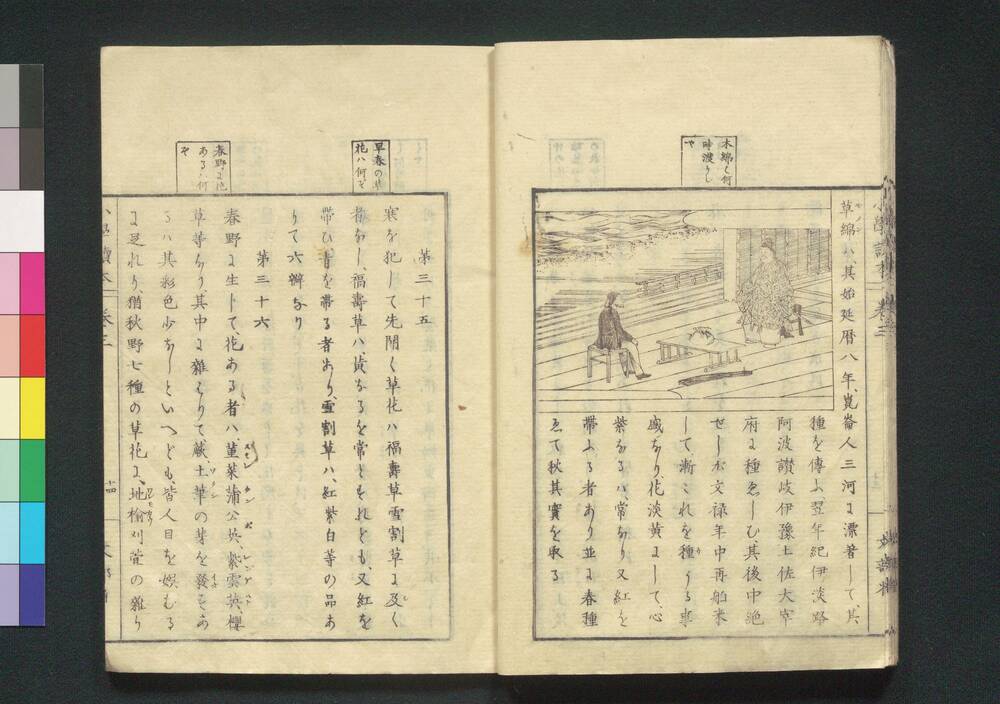 木綿ハ何
時渡りし
や
草綿ハ、其始延暦八年、崑崙人三河に漂着して、其
種を傳ふ翌年紀伊淡路
阿波讃岐伊豫土佐大宰
府に種ゑしむ、其後中絶
せしが文禄年中再舶来
して漸これを種うる事
盛なり花淡黄にして、心
紫なるハ、常なり又紅を
帶ふる者あり並に春種
ゑて秋其實を取る
早春の草
花ハ何ぞ
春野に花
あるハ何
ぞ
第三十五
寒を犯して先開く草花ハ福壽草雪割草に及く
者なし、福壽草ハ黄なるを常とすれども、又紅を
帶ひ、青を帶る者あり、雪割草ハ、紅紫白等の品あ
りて六瓣なり
第三十六
春野に生して、花ある者ハ、菫菜蒲公英、紫雲英、櫻
草等なり、其中に雜はりて、蕨土筆の芽を發すあ
るハ其彩色少なしといへども、皆人目を娯むる
に足れり、猶秋野七種の草花に、地榆刈萱の雜り
小學讀本 巻三
十四
文部省